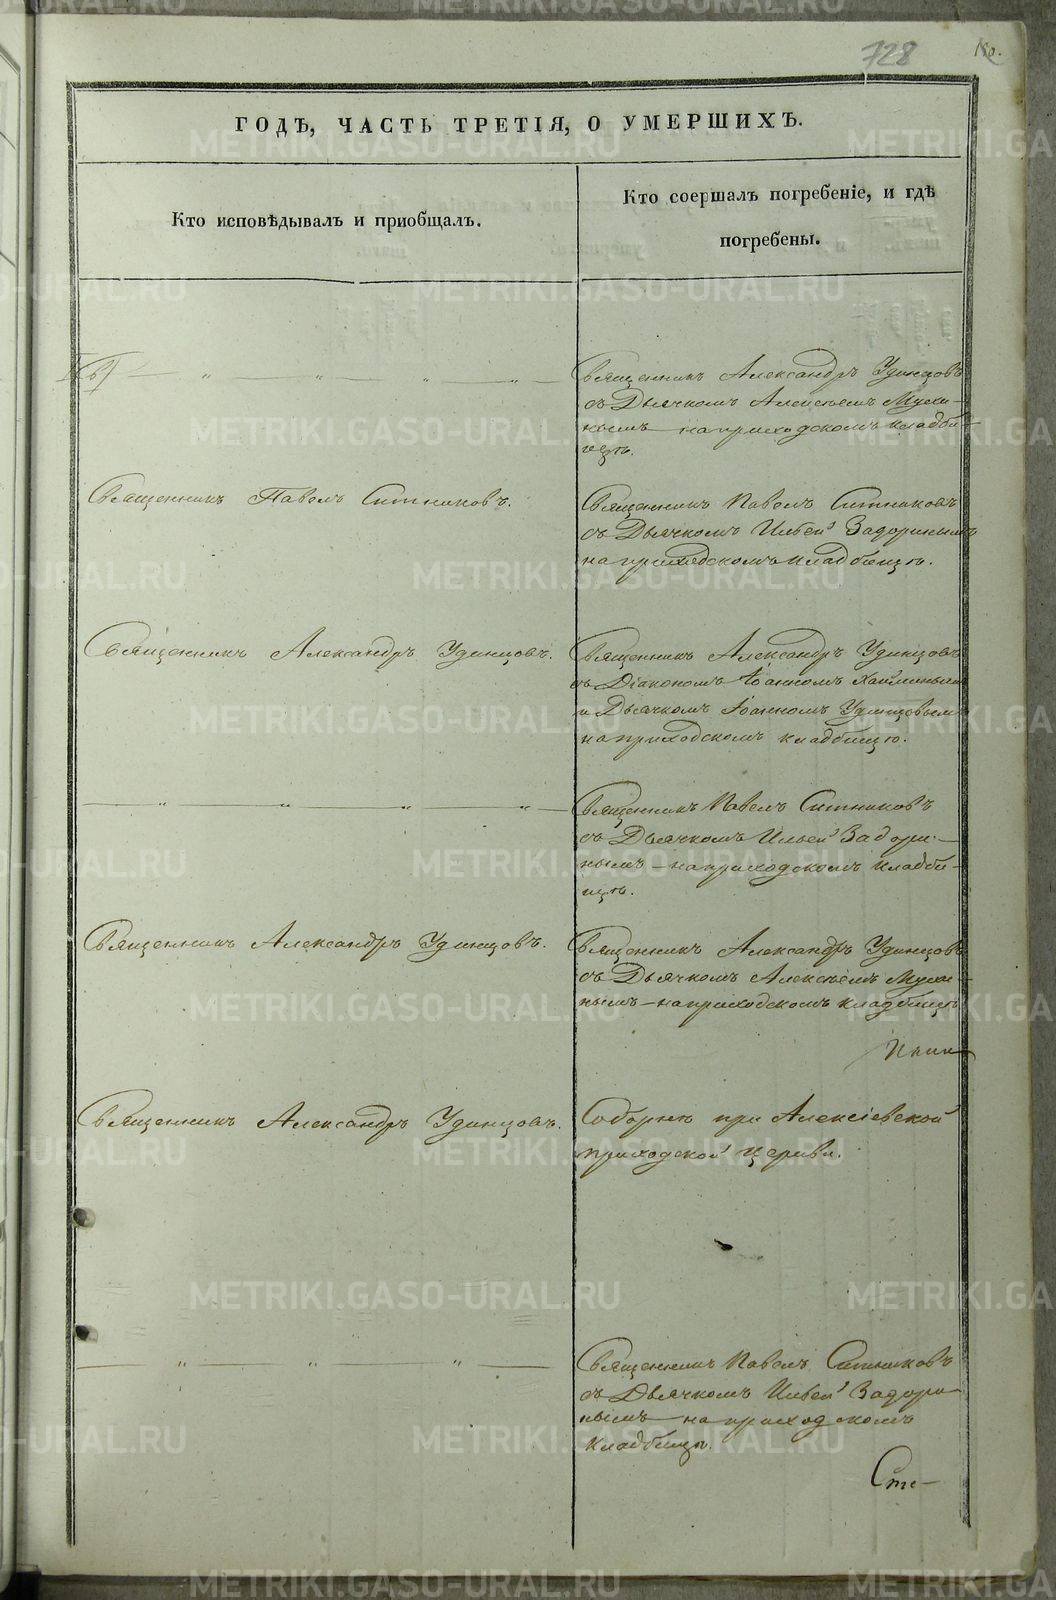 728
ГОДЪ, ЧАСТЬ ТРЕТІЯ, О УМЕРШИХЪ.
Кто исповѣдывалъ и приобщалъ.
Кто соершалъ погребеніе, и гдѣ
погребены.
Священникъ Александръ Удинцовъ
съ Дьячкомъ Алексѣемъ Мухи-
нымъ на приходскомъ кладби-
щѣ.
Священникъ Павелъ Ситниковъ.
Священникъ Павелъ Ситниковъ
съ Дьячкомъ Ильей Задоринымъ
на приходскомъ кладбищѣ.
Священникъ Александръ Удинцовъ.
Священникъ Александръ Удинцовъ
съ Діакономъ Іоанномъ
и Дьячкомъ Іоанномъ Удинцовымъ
на приходскомъ кладбищѣ.
Священникъ Павелъ Ситниковъ
съ Дьячкомъ Ильей Задори-
нымъ на приходскомъ кладби-
щѣ.
Священникъ Александръ Удинцовъ.
Священникъ Александръ Удинцовъ
съ Дьячкомъ Алексѣемъ Мухи-
нымъ на приходскомъ кладбищѣ
Священникъ Александръ Удинцовъ.
Соборнѣ при Алексіевской
приходской церкви.
Священникъ Павелъ Ситниковъ
съ Дьячкомъ Ильей Задори-
нымъ на приходскомъ
кладбищѣ.
METRIKI.GASO-URAL.RU